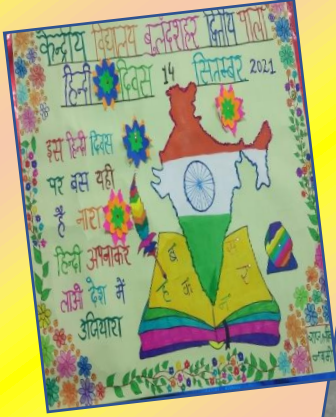 केन्द्रीय विद्यालय बुलंदशहर द्वितीय पाली
हिन्दी दिवस 14 सितम्बर 2021
इस हिन्दी दिवस
पर बस यही
है नारा
हिन्दी अपनाकर
लाओ देश में
उजियारा